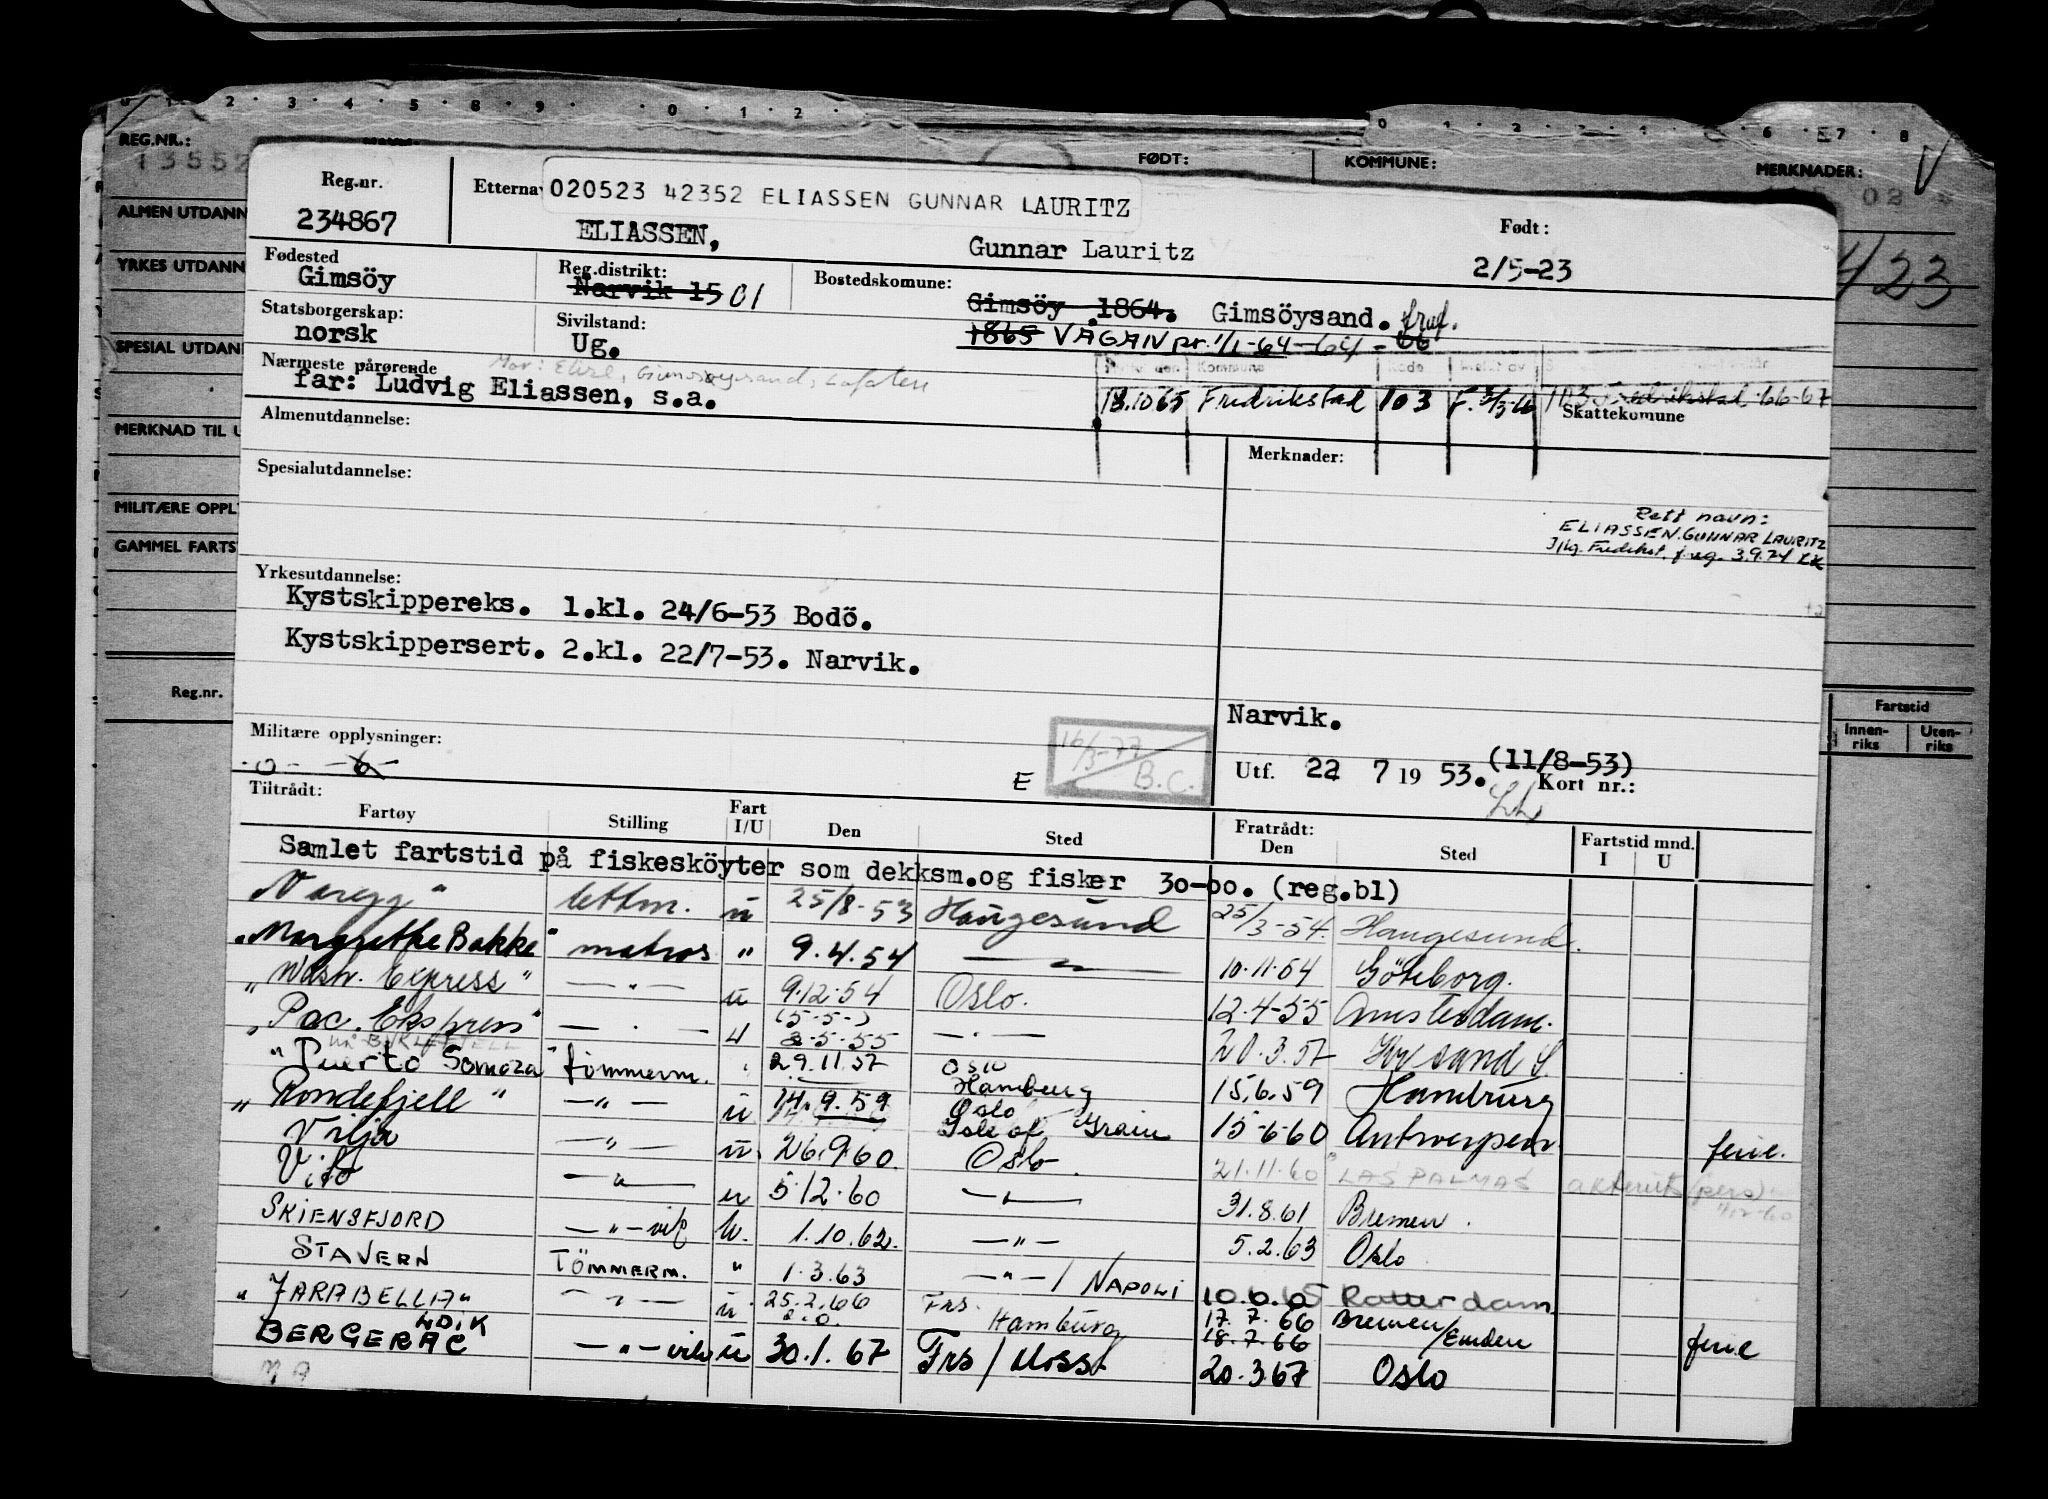 REG.NR.:
13552
FØDT:
KOMMUNE:
MERKNADER:
ALMEN UTDANN
YRKES UTDANN
SPESIAL UTDAN
MERKNAD TIL U
MILITÆRE OPPL
GAMMEL FARTS
Reg.nr.
423
Fartstid
Innen-riks Uten-riks
Reg.nr.
234867
Etternav
020523 42352 ELIASSEN GUNNAR LAURITZ
ELIASSEN, Gunnar Lauritz
Født:
2/5-23
Fødested
Gimsöy
Reg.distrikt:
Narvik 15 01
Bostedskomune:
Gimsöy 1864. Gimsöysand.
1865 VÅGAN pr. 1/1-64-64-66
Statsborgerskap:
norsk
Sivilstand:
Ug.
Nærmeste pårørende
far: Ludvig Eliassen, s.a.
Mor: Gimsøysand, Lofoten
Kommune Kode
18.10 65 Fredrikstad 103 F. 103 Fredrikstad 66-67
Skattekomune
Almenutdannelse:
Spesialutdannelse:
Merknader:
Rett navn:
ELIASSEN, GUNNAR LAURITZ
Fredrikst. 3.9.74 LK
Yrkesutdannelse:
Kystskippereks. 1.kl. 24/6-53 Bodö.
Kystskippersert. 2.kl. 22/7-53. Narvik.
Militære opplysninger:
-o- -6-
E
16/3-77 B.C.
Narvik.
Utf. 22 7 19 53. (11/8-53)
Kort nr.:
Tiltrådt:
Fartøy Stilling Fart I/U Den Sted Fratrådt: Den Sted Fartstid mnd. I U
Samlet fartstid på fiskesköyter som dekksm.og fisker 30-00. (reg.bl)
"Varegg" lettm. u 25/8-53 Haugesund 25/3-54. Haugesund.
"Margrethe Bakke" matros " 9.4.54 — " — 10.11.54 Göteborg.
"Wash. Express" — " — u 9.12.54 Oslo. 12.4-55 Amsterdam.
"Pac. Ekspress" — " — u 8-5-55 — " — 20.3.57 Kr sand S.
"Puerto Somoza" tömmerm. " 29.11.57 Oslo Hamburg 15.6.59 Hamburg
"Rondefjell" — " — u 14.9.59 Oslo Isle of Grain 15-6-60 Antwerpen ferie.
Vilja — " — u. 26.9.60. Oslo. 21.11.60 LAS PALMAS
Vito — " — u 5.12.60 — " — 31.8.61 Bremen.
SKIENSFJORD — " — vik u. 1.10.62. — " — 5.2.63 Oslo
STAVERN TÖMMERM. " 1.3.63 — " — / NAPOLI 10.6.65 Rotterdam
"JARABELLA" — " — u 25.2.66 Frs. Hamburg 17.7.66 Bremen/Emden
18.7.66 ferie
BERGERAC LDIK — " — vik u 30.1.67 Frs / Moss 20.3.67 Oslo